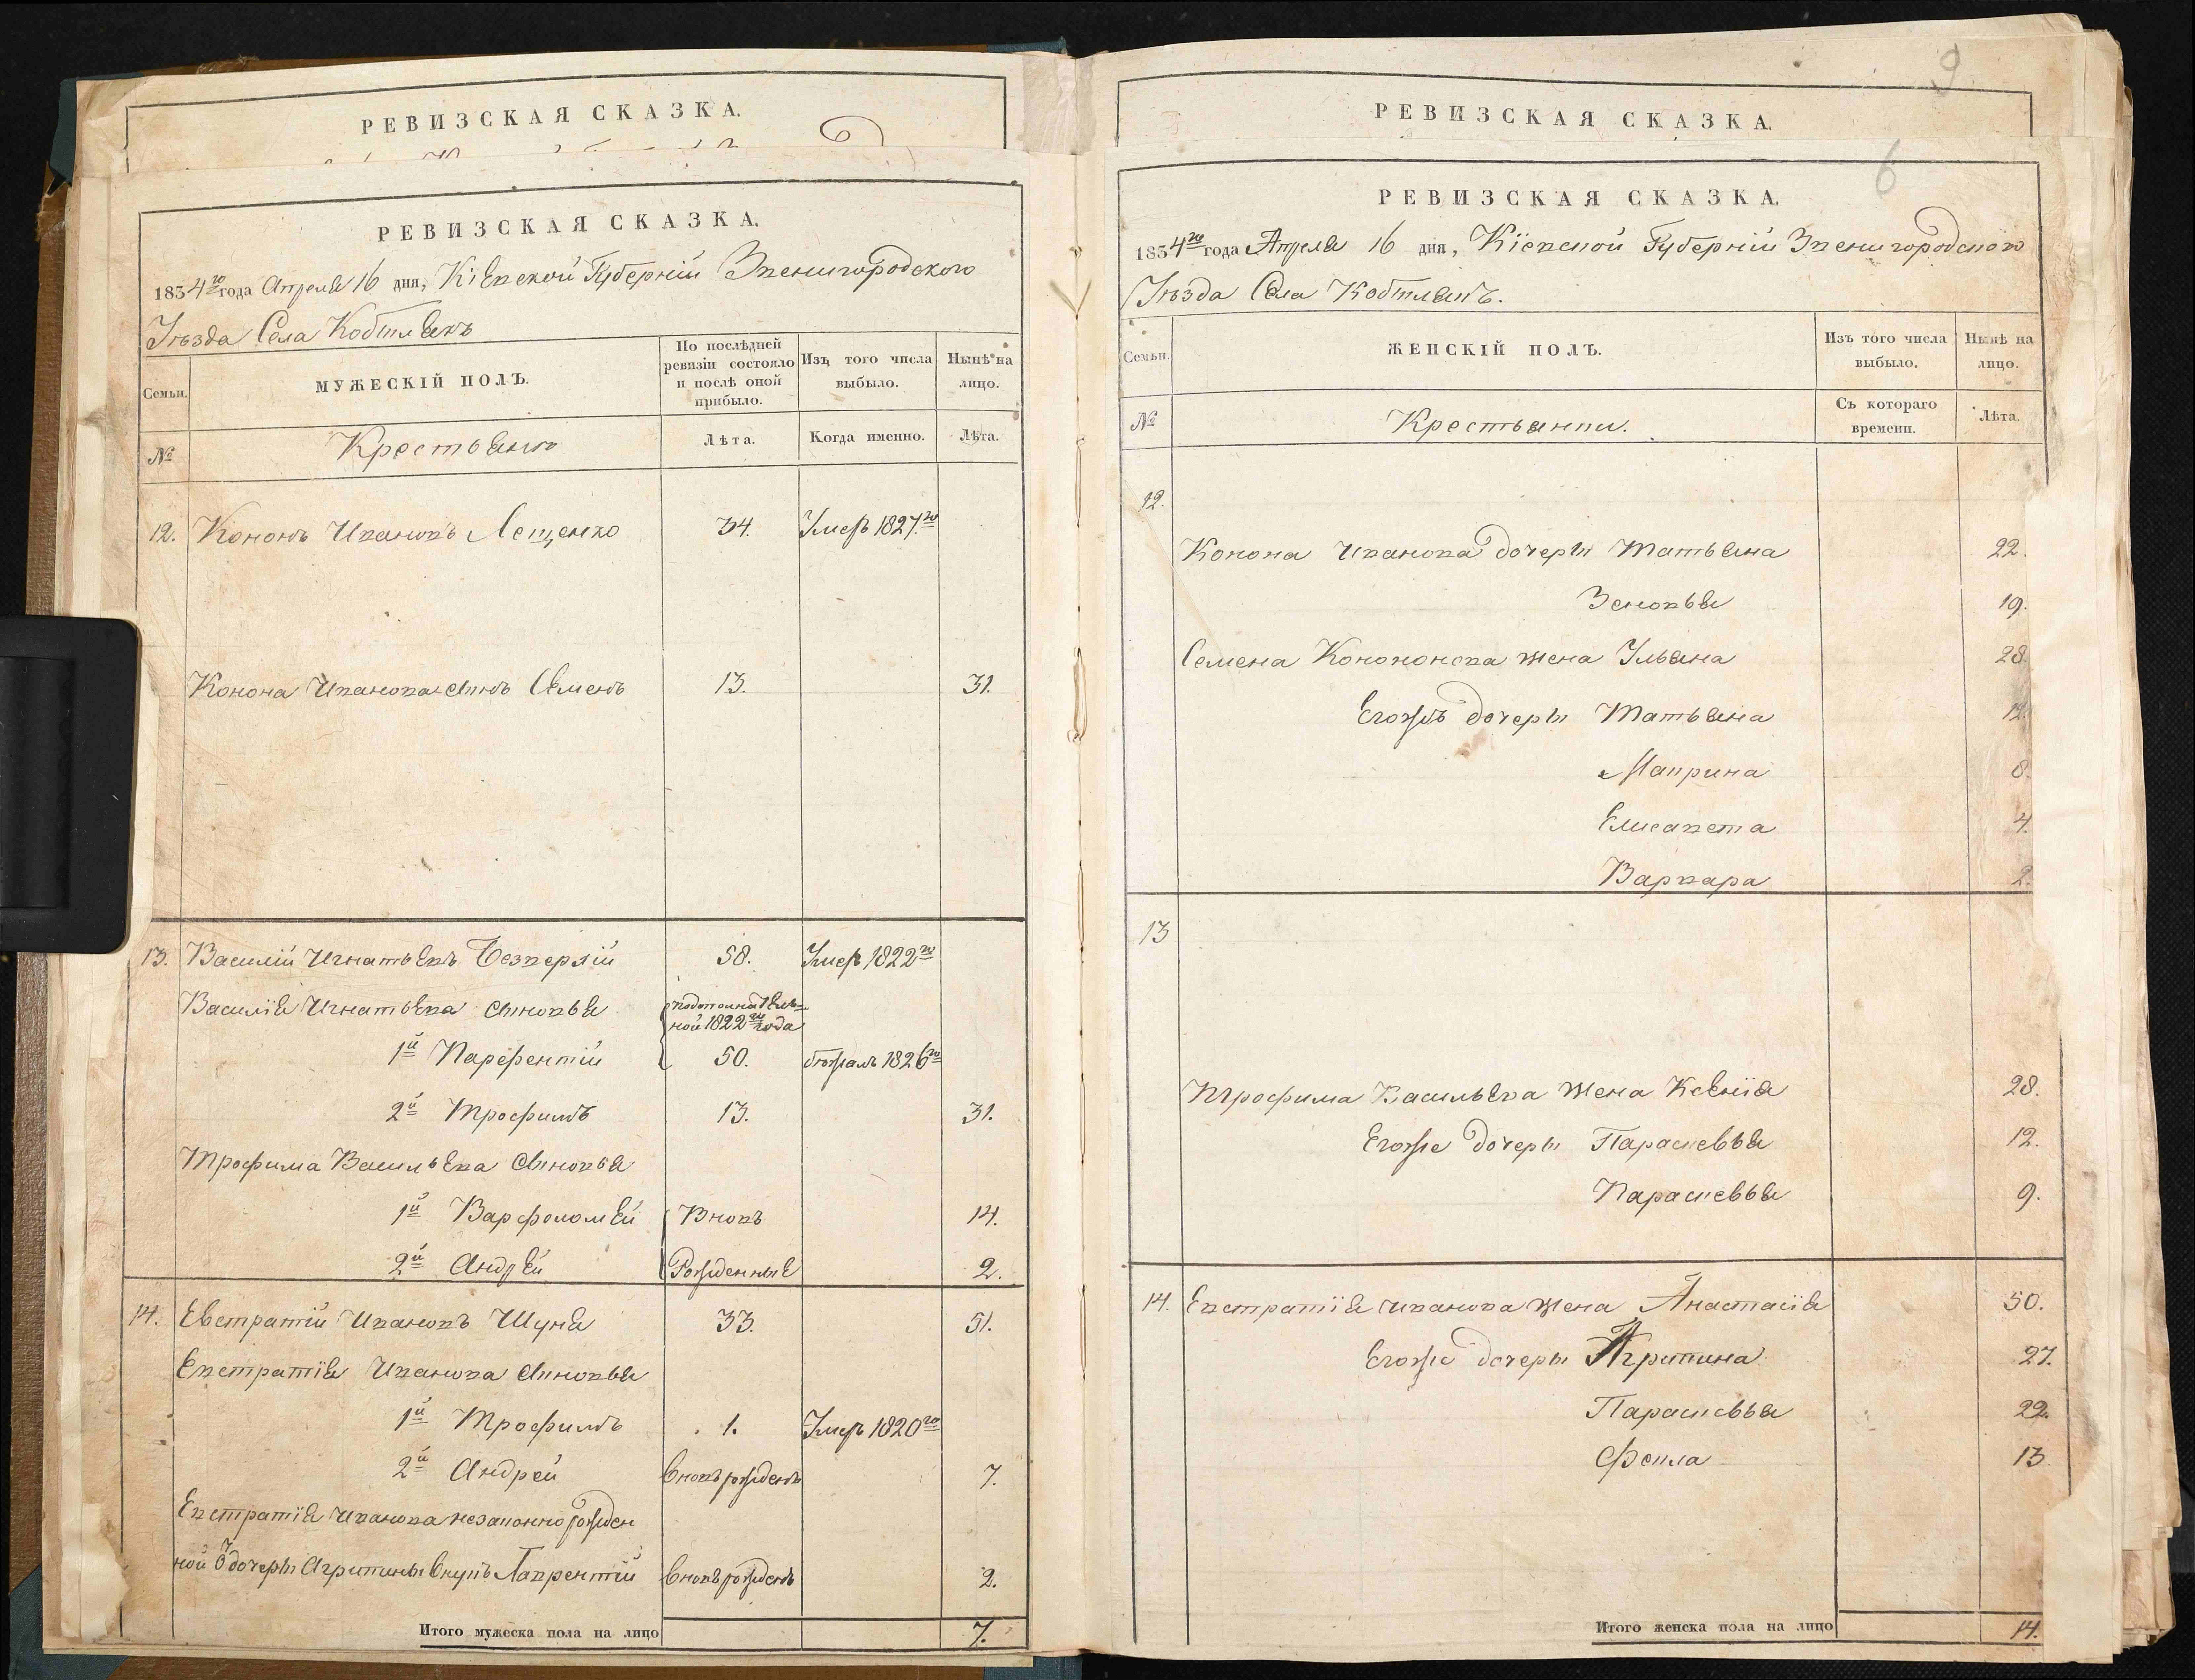 РЕВИЗСКАЯ СКАЗКА.
РЕВИЗСКАЯ СКАЗКА.
1834го года Апреля 16 дня, Кіевской Губерніи Звенигородского
Уѣзда Села
По послѣдней ревизіи состояло и послѣ оной прибыло.
Изъ того числа выбыло.
Нынѣ на лицо.
Семьи.
МУЖЕСКІЙ ПОЛЪ.
№
Крестьяне
Лѣта.
Когда именно.
Лѣта.
12. Кононъ Ивановъ Лещенко 34. Умеръ 1827.го
Конона Иванова сынъ Семенъ 13. 31.
13. Василій Игнатьевъ Безверхій 58. Умеръ 1822го
Василія Игнатьева сыновья
ной 1822го года
1й Парфентій 50. бѣжалъ 1826го
2й Трофимъ 13. 31.
Трофима Васильева сыновья
1й Варфоломей Вновь 14.
2й Андрей Рожденные 2.
14. Евстратій Ивановъ Шуня 33. 51.
Евстратія Иванова сыновья
1й Трофимъ 1. Умеръ 1820го
2й Андрей вновь рожденъ 7.
Евстратія Иванова незаконно рожден
ной дочеры Агрипины внукъ Лаврентій вновь рожденъ 2.
Итого мужеска пола на лицо 7.
9
РЕВИЗСКАЯ СКАЗКА.
6
РЕВИЗСКАЯ СКАЗКА.
1834го года Апреля 16 дня, Кіевской Губерніи Звенигородского
Уѣзда Села
Семьи.
ЖЕНСКІЙ ПОЛЪ.
Изъ того числа выбыло.
Нынѣ на лицо.
№
Крестьянки.
Съ котораго времени.
Лѣта.
12.
Конона Иванова дочеры Татьяна 22.
Зеновья 19.
Семена Кононова жена Ульяна 28.
Егожъ дочеры Татьяна 12.
Маврина 8.
Елисавета 4.
Варвара 2.
13
Трофима Васильева жена Ксенія 28.
Егоже дочеры Параскевья 12.
Параскевья 9.
14. Евстратія Иванова жена Анастасія 50.
Егоже дочеры Агрипина 27.
Параскевья 22.
Фекла 13.
Итого женска пола на лицо 14.